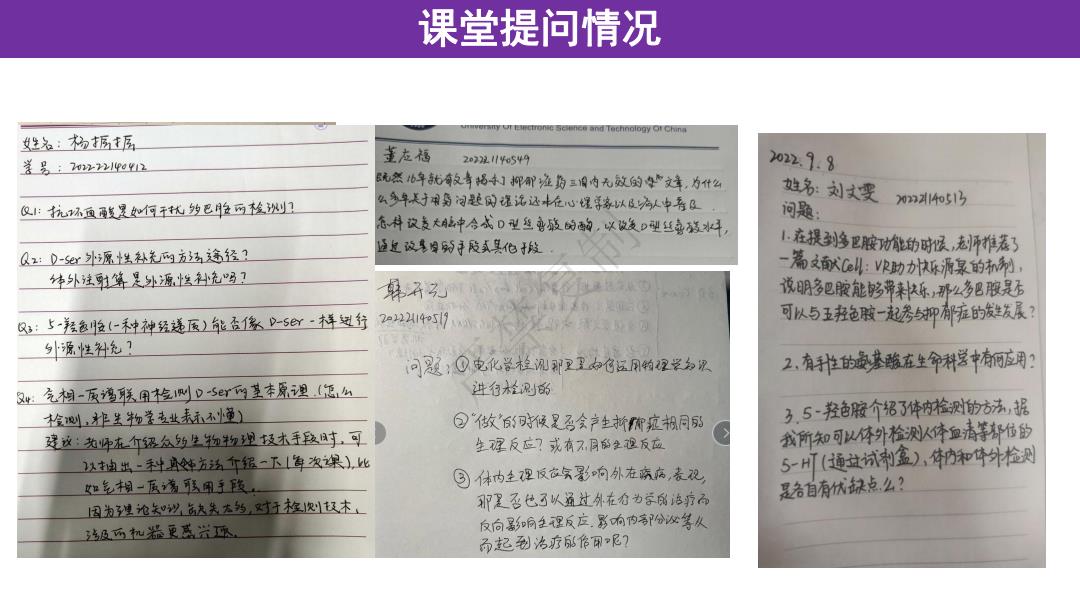 课堂提问情况
姓名：杨振振
学号：202222140412
Q1：抗坏血酸是如何干扰多巴胺的检测？
Q2：D-ser外源性补充的方法途径？
体外注射算是外源性补充吗？
Q3：5-羟色胺(一种神经递质)能否像D-ser一样进行
外源性补充？
Q4：气相-质谱联用检测D-ser的基本原理（怎么
检测，非生物学专业表示不懂）
建议：老师在介绍众多生物物理技术手段时，可
以抽出一种具体方法介绍一下(每次课)，比
如气相-质谱联用手段。
因为理论知识，对于检测技术，
涉及的机器更感兴趣。
University Of Electronic Science and Technology Of China
董应福 202221140549
既然16年就有文章揭示了抑郁症药三周内无效的文章，为什么
么多年关于用药问题的理论还未在心理学家以及病人中普及
怎样改变大脑中合成D型丝氨酸的酶，以改变D型丝氨酸水平，
通过改基因的手段或其他手段.
韩开元
202221140519
问题：①电化学检测那里是如何运用物理学知识
进行检测的
②“做”的时候是否会产生抑郁症相同的
生理反应？或有不同的生理反应
③体内生理反应会影响外在疾病，表现，
那是否也可以通过外在行为学的治疗而
反向影响生理反应.影响内部分泌等从
而起到治疗的作用呢？
2022.9.8
姓名：刘文雯 202221140513
问题：
1.在提到多巴胺功能的时候，老师推荐了
一篇文献Cell：VR助力快乐源泉的机制，
说明多巴胺能够带来快乐，那么多巴胺是否
可以与五羟色胺一起参与抑郁症的发生发展？
2.有手性的氨基酸在生命科学中有何应用？
3.5-羟色胺介绍了体内检测的方法，据
我所知可以体外检测人体血清等部位的
5-HT（通过试剂盒），体内和体外检测
是各自有优缺点么？